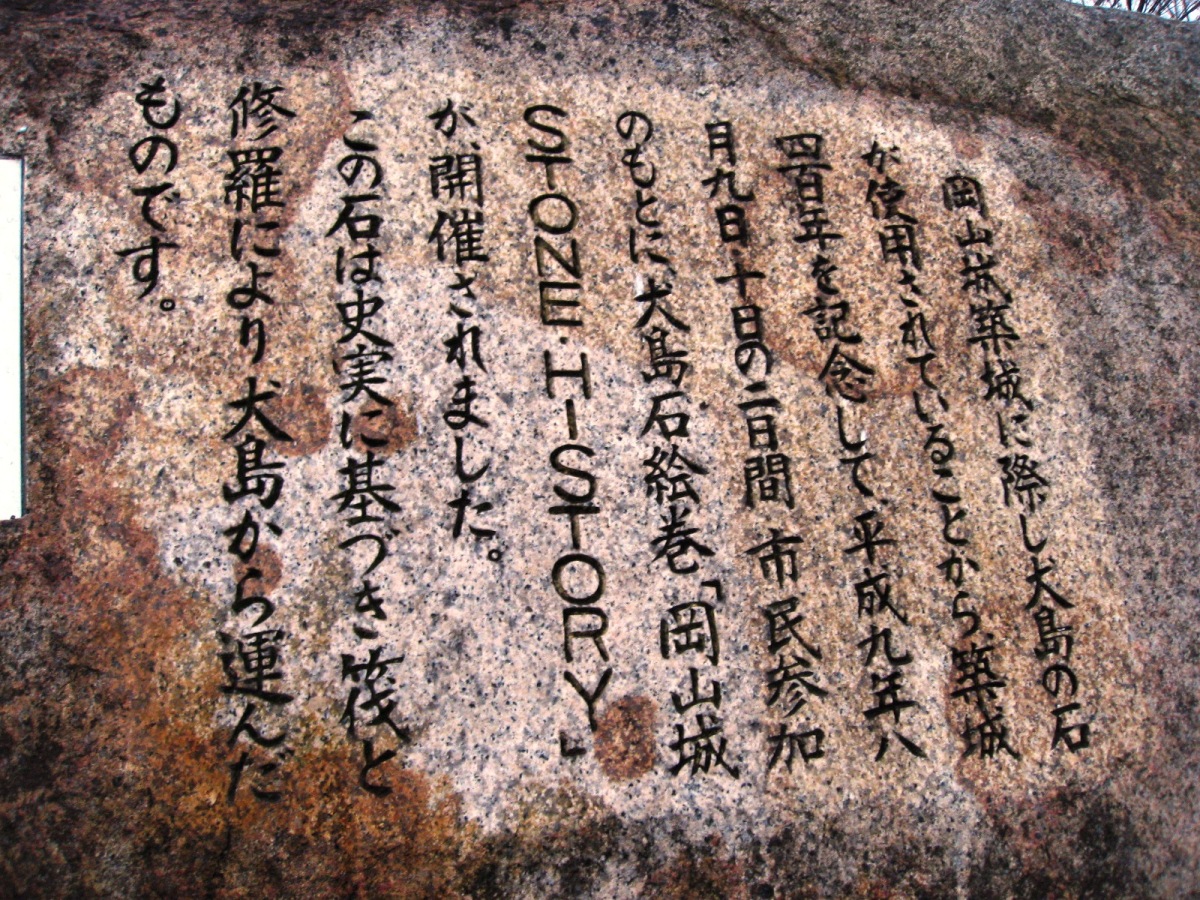 岡山城築城に際し犬島の石
が使用されていることから、築城
四百年を記念して、平成九年八
月九日十日の二日間市民参加
のもとに、犬島石絵巻「岡山城
STONE・HISTORY」
が、開催されました。
この石は史実に基づき筏と
修羅により犬島から運んだ
ものです。